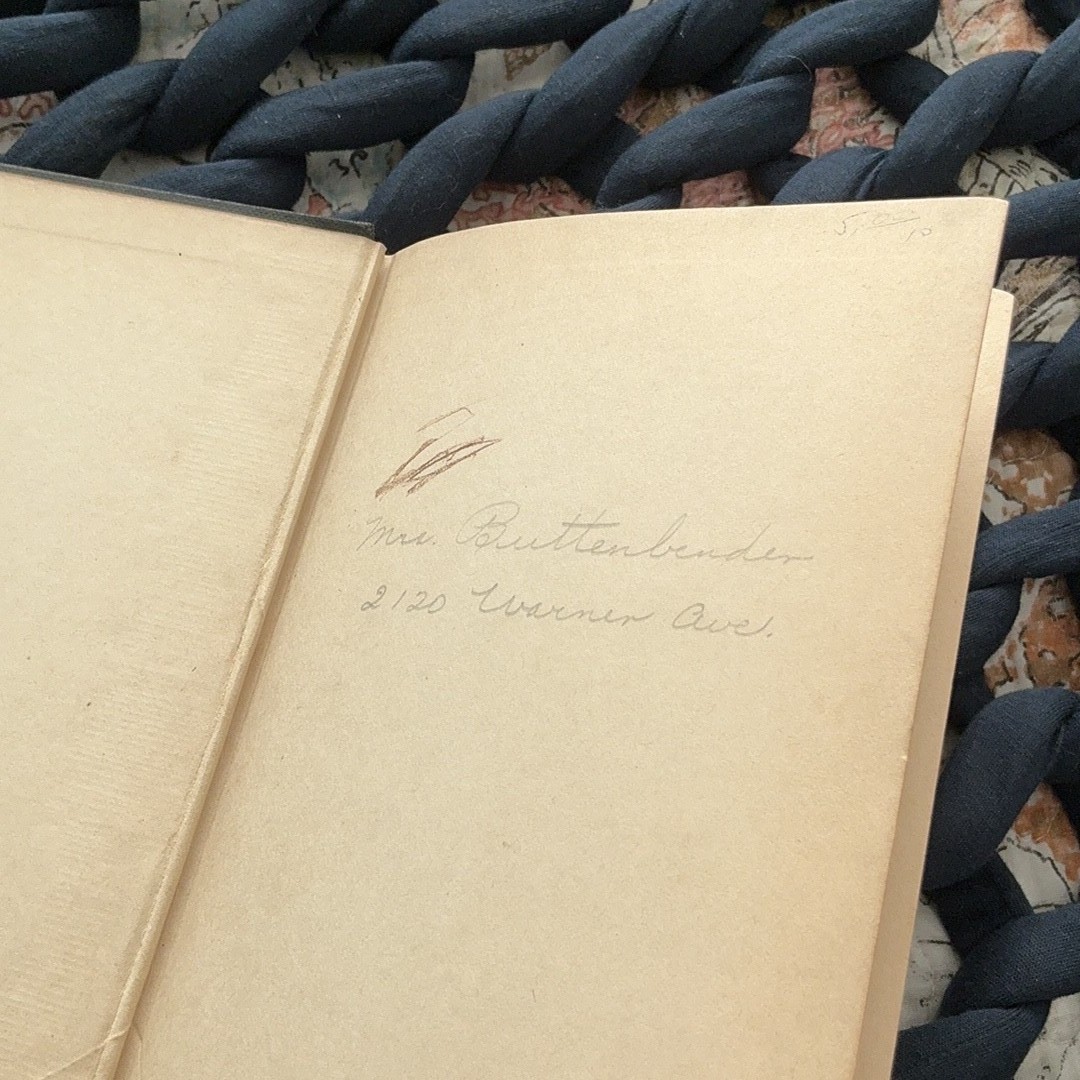 5.00 10
Mrs. Buttenbender
2120 Warner Ave.